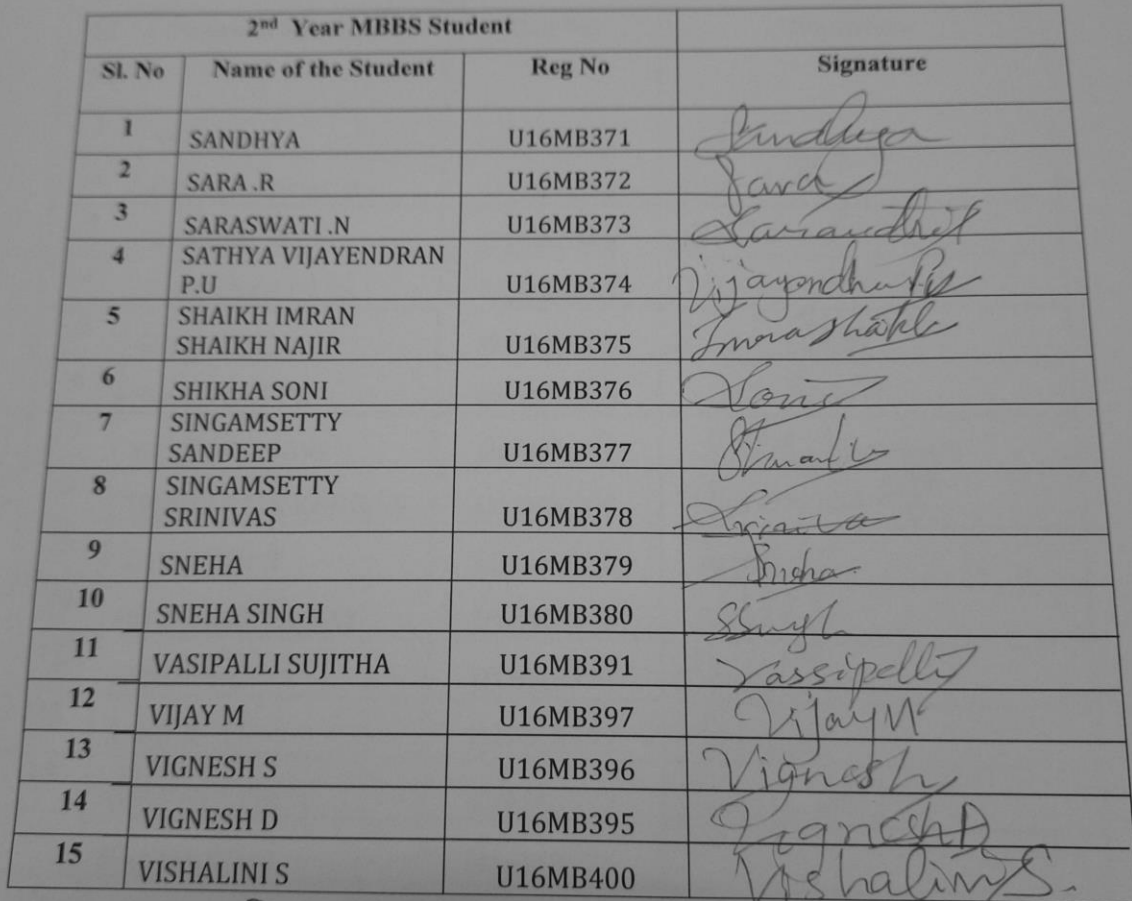 2nd Year MBBS Student
Sl. No Name of the Student Reg No Signature
1 SANDHYA U16MB371 Sandhya
2 SARA .R U16MB372 Sara
3 SARASWATI .N U16MB373
4 SATHYA VIJAYENDRAN
P.U U16MB374
5 SHAIKH IMRAN
SHAIKH NAJIR U16MB375
6 SHIKHA SONI U16MB376 Soni
7 SINGAMSETTY
SANDEEP U16MB377
8 SINGAMSETTY
SRINIVAS U16MB378
9 SNEHA U16MB379 Sneha
10 SNEHA SINGH U16MB380 SSingh
11 VASIPALLI SUJITHA U16MB391 Vassipalli
12 VIJAY M U16MB397 Vijay M
13 VIGNESH S U16MB396 Vignesh
14 VIGNESH D U16MB395 Vignesh D
15 VISHALINI S U16MB400 Vishalini S.